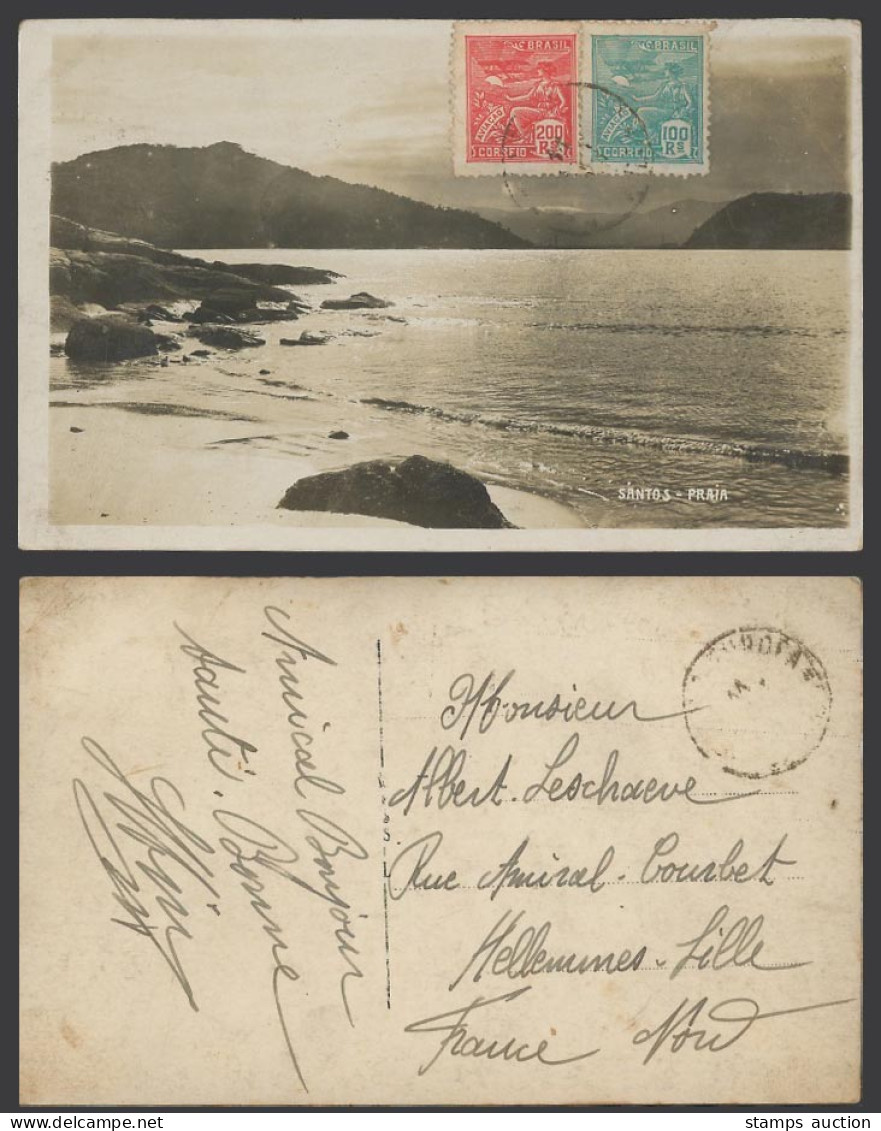 BRASIL
AVIAÇÃO
200
RS
CORREIO
BRASIL
AVIAÇÃO
100
RS
CORREIO
SANTOS - PRAIA
Amical Bonjour
Bonne
Santé.
Monsieur
Albert. Leschaeve
Rue Amiral-Courbet
Hellemmes-Lille
France Nord
stamps auction